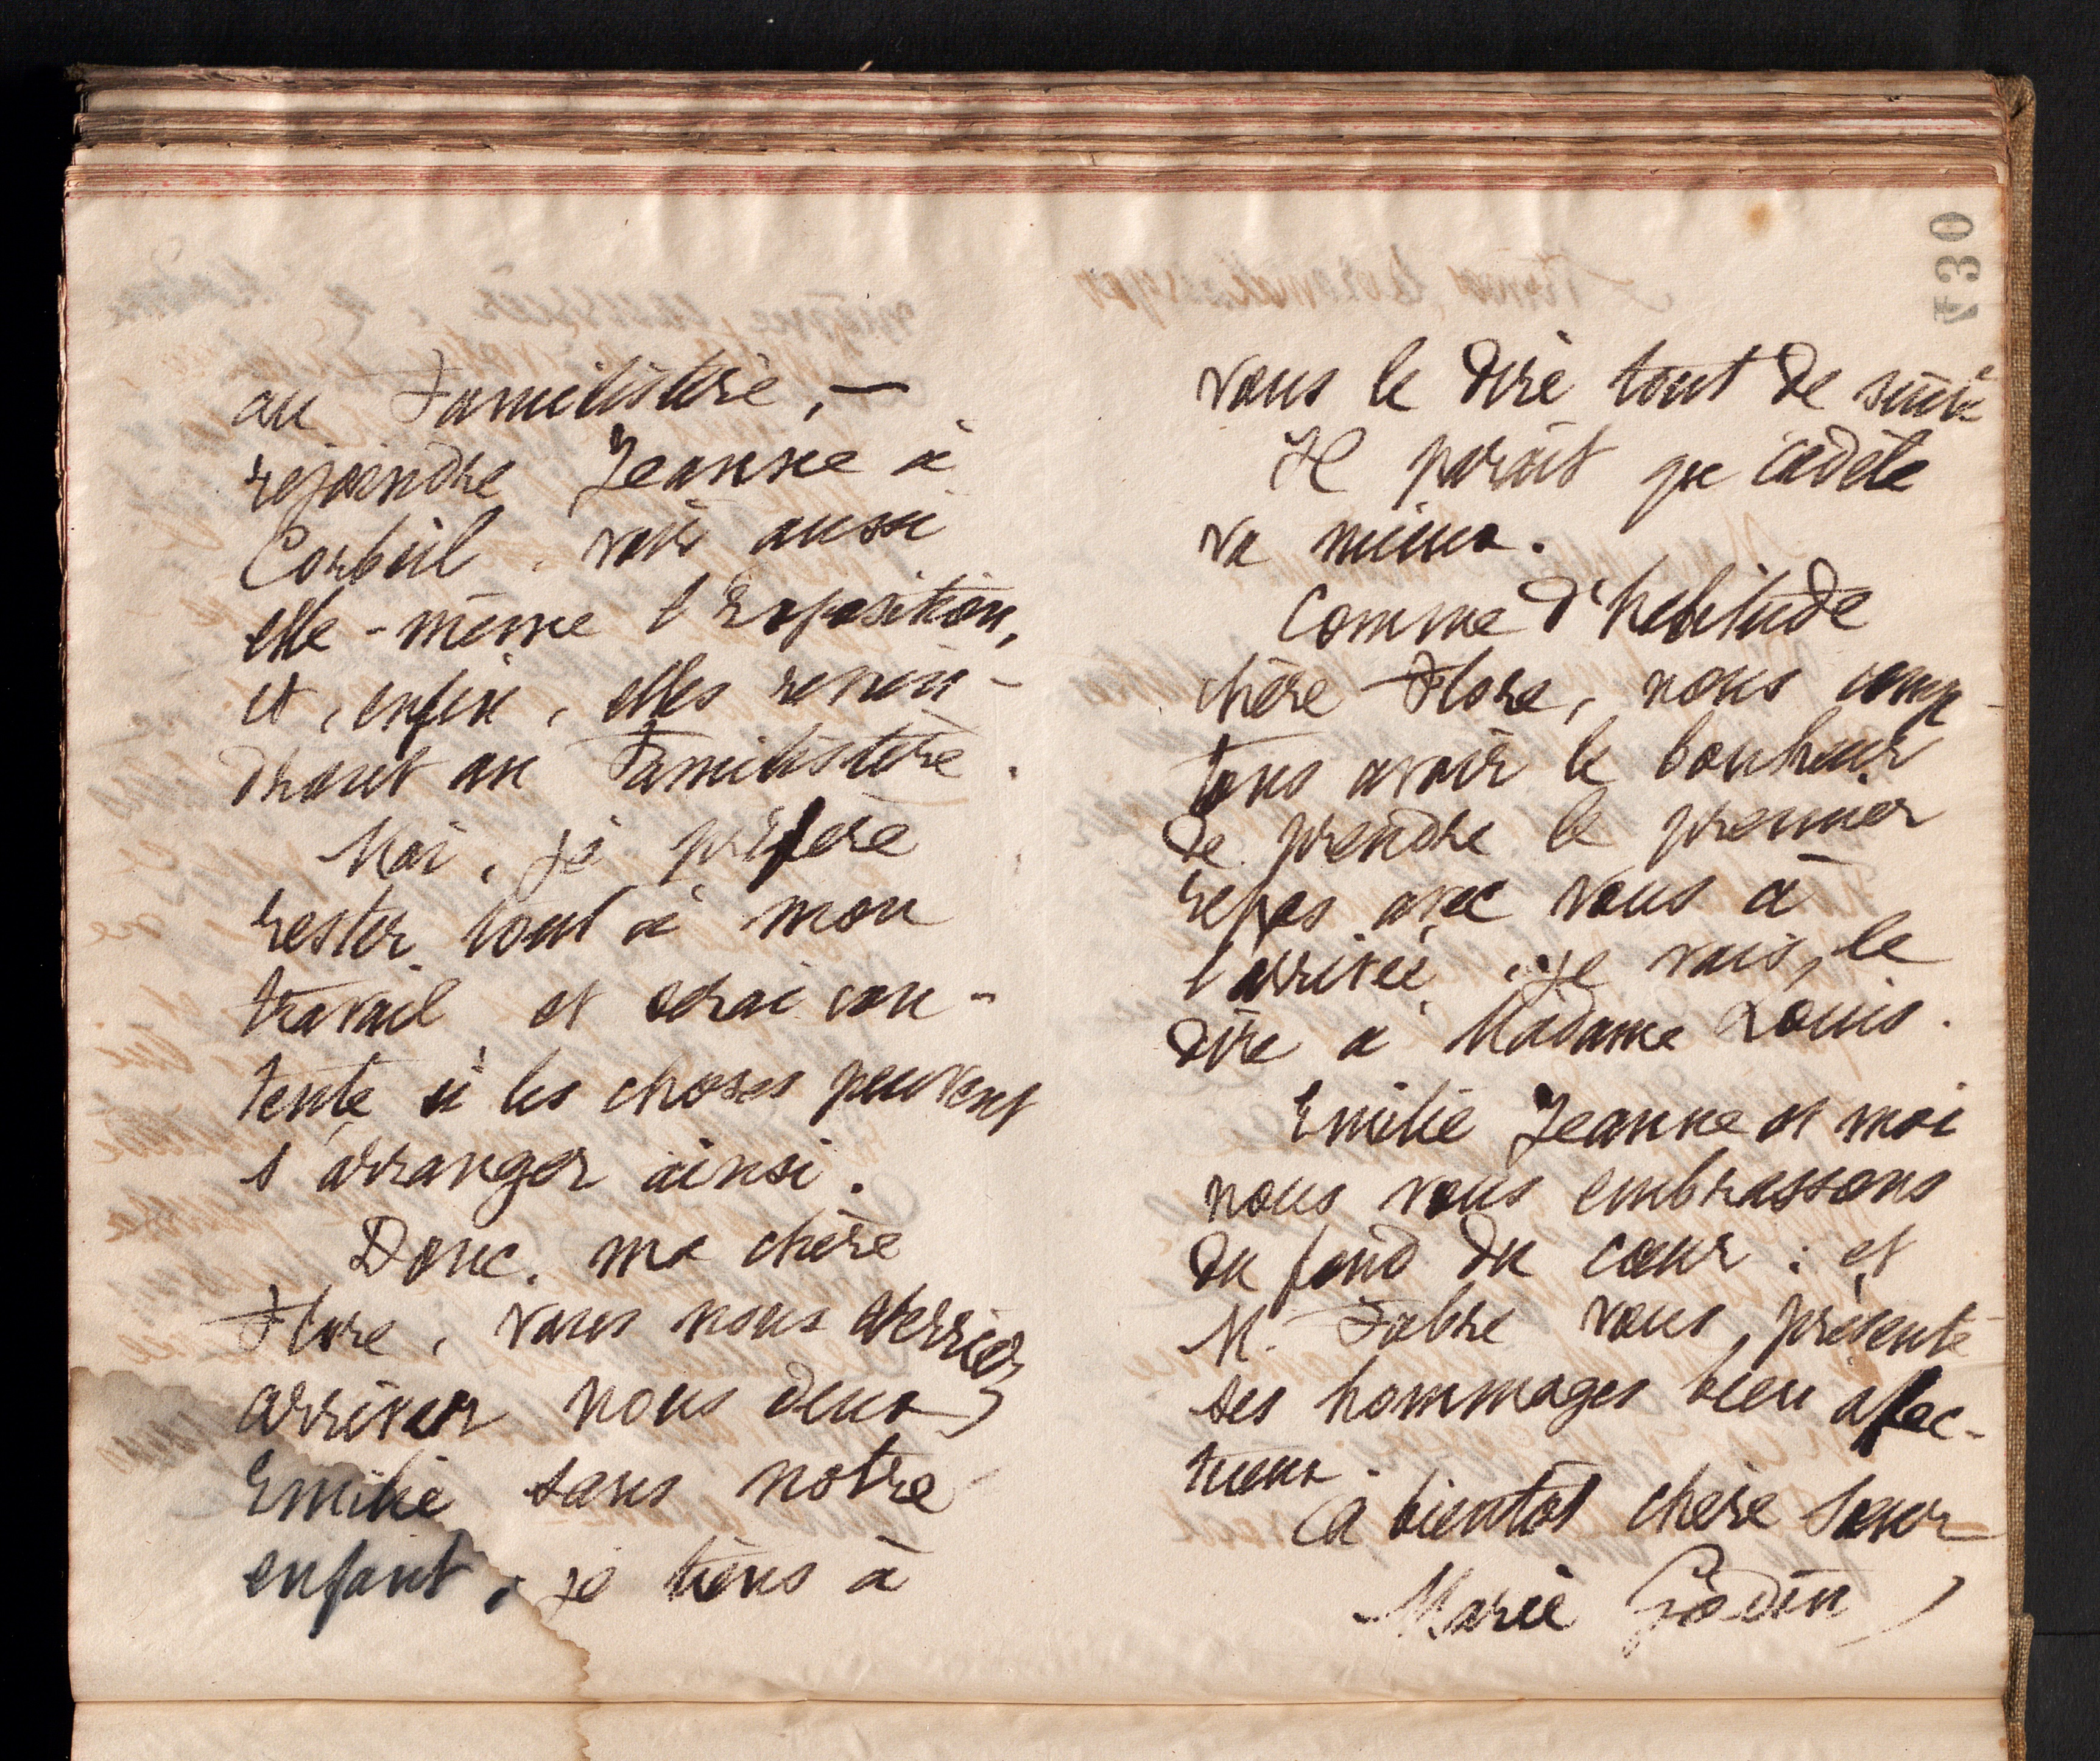 au Familistère, —
rejoindre Jeanne à
Corbeil. voir aussi
elle-même l'Exposition,
et, enfin, elles revien-
dront au Familistère.
Moi, je préfère
rester tout à mon
travail et serai con-
tente si les choses peuvent
s'arranger ainsi.
Donc. ma chère
Flore, vous nous verriez
arriver nous deux
Emilie sans notre
enfant, je tiens à
730
vous le dire tout de suite
Il paraît que cadète
va mieux.
Comme d'habitude
chère Flore, nous comp-
tons avoir le bonheur
de prendre le premier
repas avec vous à
l'arrivée. Je vais, le
dire à Madame Louis.
Emilie Jeanne et moi
nous vous embrassons
du fond du cœur : et
M. Fabre vous présente
ses hommages bien affec-
tueux.
A bientôt chère sœur
Marie Godin